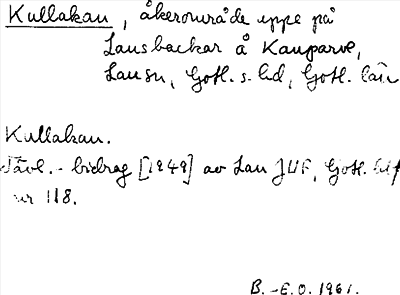 Kullakan, åkerområde uppe på
Lausbackar å Kauparve,
Lausn, Gotl. s. hd, Gotl. län
Kullakan.
Tävl.-bidrag [1949] av Lau JUF, Gotl.
nr 118.
B.-E.O. 1961.